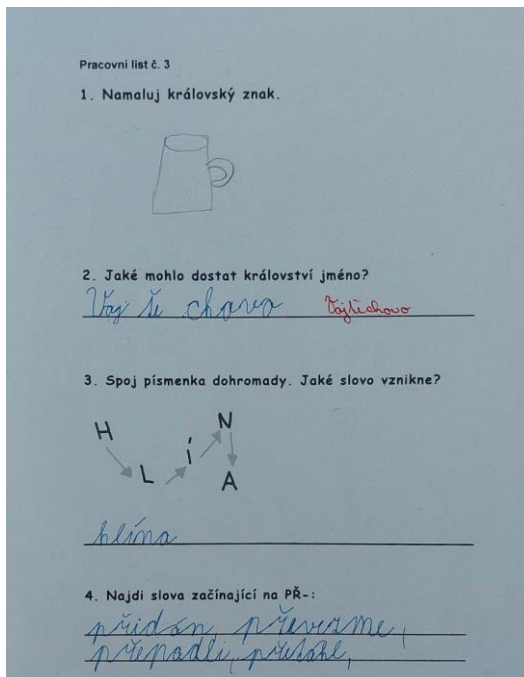 Pracovní list č. 3
1. Namaluj královský znak.
2. Jaké mohlo dostat království jméno?
Voj tě chovo Vojtěchovo
3. Spoj písmenka dohromady. Jaké slovo vznikne?
H L Í N A
hlína
4. Najdi slova začínající na PŘ-:
přidán, převezme,
přepadli, přetáhl,